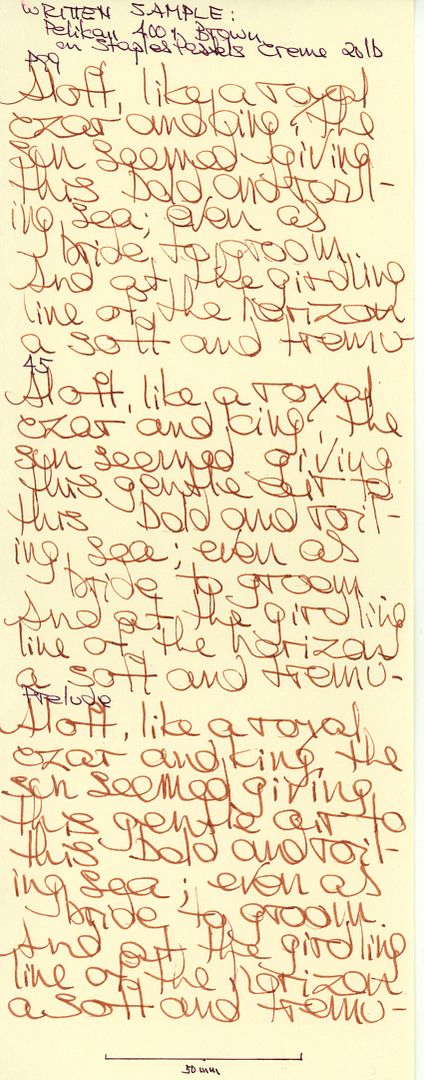 WRITTEN SAMPLE:
Pelikan 4001 Brown
on Staples Pastels Creme 20lb
P99
Aloft, like a royal
czar and king, the
sun seemed giving
this bold and roll-
ing sea; even as
bride to groom.
And at the girdling
line of the horizon
a soft and tremu-
45
Aloft, like a royal
czar and king, the
sun seemed giving
this gentle air to
this bold and roll-
ing sea; even as
bride to groom
And at the girdling
line of the horizon
a soft and tremu-
Prelude
Aloft, like a royal
czar and king, the
sun seemed giving
this gentle air to
this bold and roll-
ing sea; even as
bride to groom.
And at the girdling
line of the horizon
a soft and tremu-
50 mm